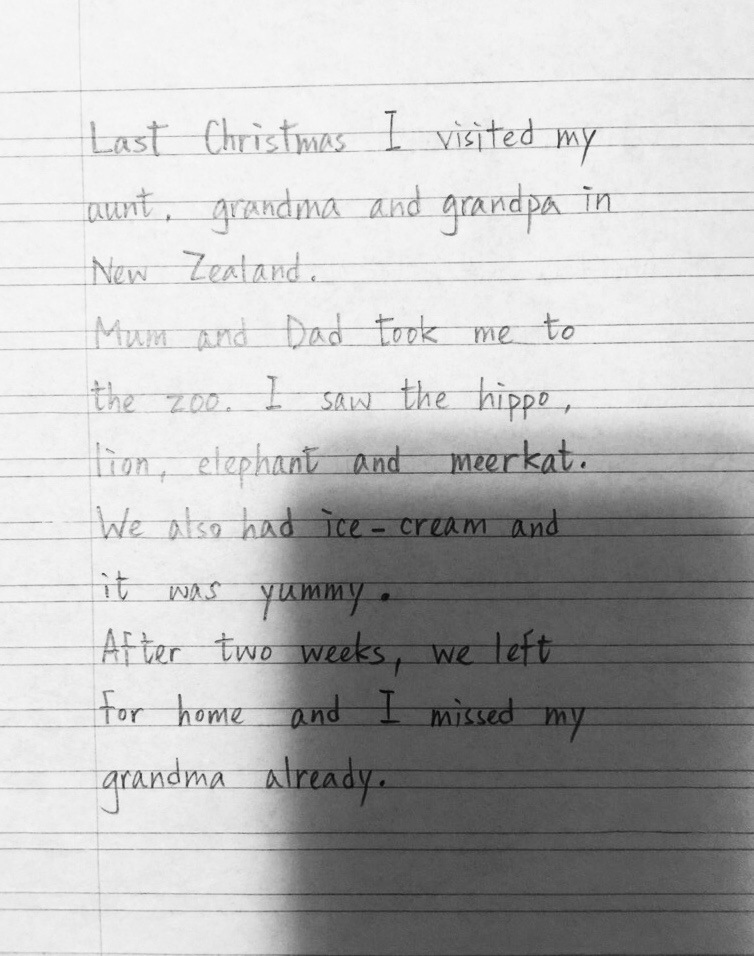 Last Christmas I visited my
aunt, grandma and grandpa in
New Zealand.
Mum and Dad took me to
the zoo. I saw the hippo,
lion, elephant and meerkat.
We also had ice-cream and
it was yummy.
After two weeks, we left
for home and I missed my
grandma already.